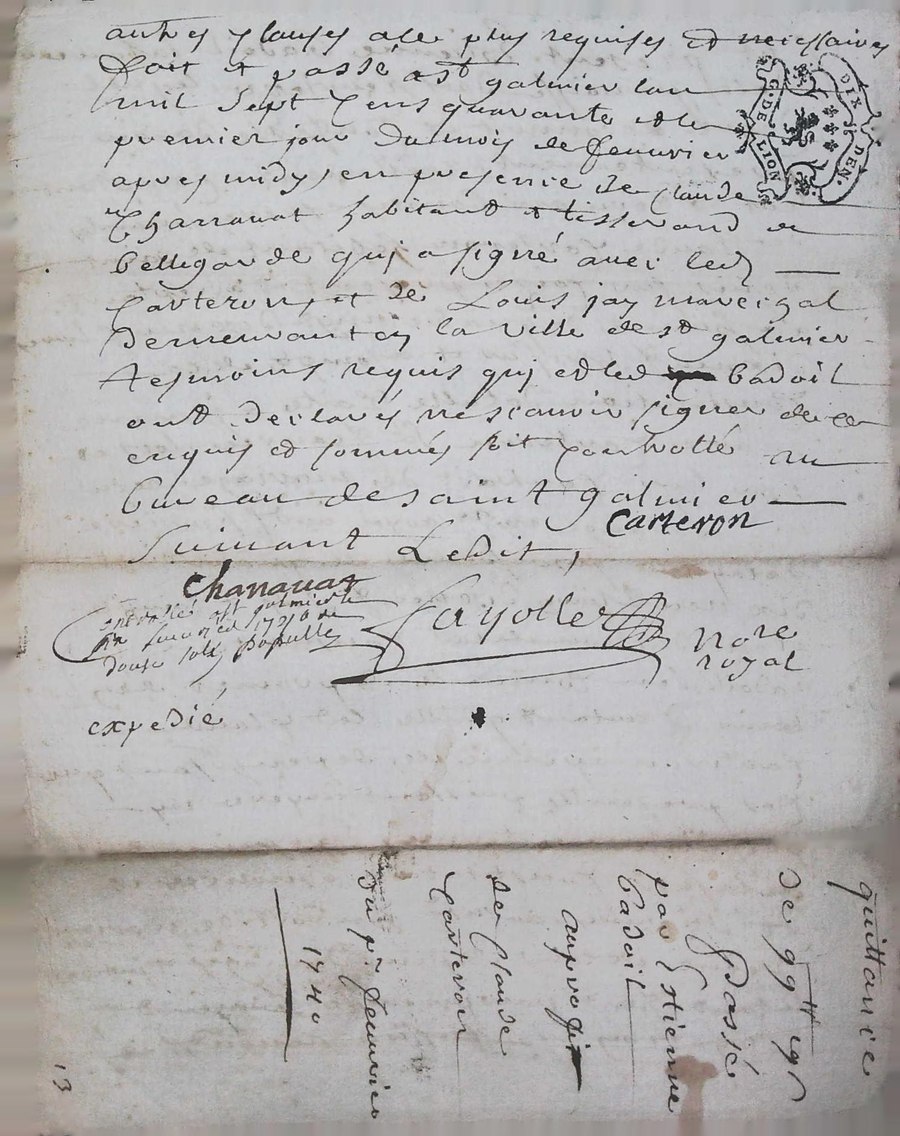 autres clauses a ce plus requises et necessaires
fait et passé a st galmier lan
mil sept cens quarante et le
premier jour du mois de feuurier
apres midy en presence de claude
Charrauat habitant et tisserand de
bellegarde quj a signé auec led
Carteron, et de Louis jay marechal
demeurant en la ville de st galmier
tesmoins requis quj et led badoil
ont declarés ne scauoir signer de ce
enquis et sommés soit controllé au
bureau de saint galmier
suiuant Ledit,
G. DE LION
DIX DEN.
Carteron
Charrauat
controllé a st galmier le
douze sols
fayolle
nore
royal
expedié
quittance
de 99tt
passé
par Estienne
badoil
au profit
de claude
Carteron
du pr feuurier
1740
13